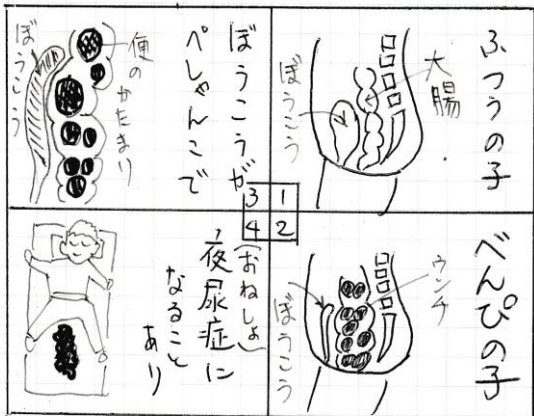 ふつうの子
大腸
ぼうこう
1
べんぴの子
ウンチ
ぼうこう
2
ぼうこうが
ぺしゃんこで
便のかたまり
ぼうこう
3
(おねしょ)
夜尿症に
なること
あり
4